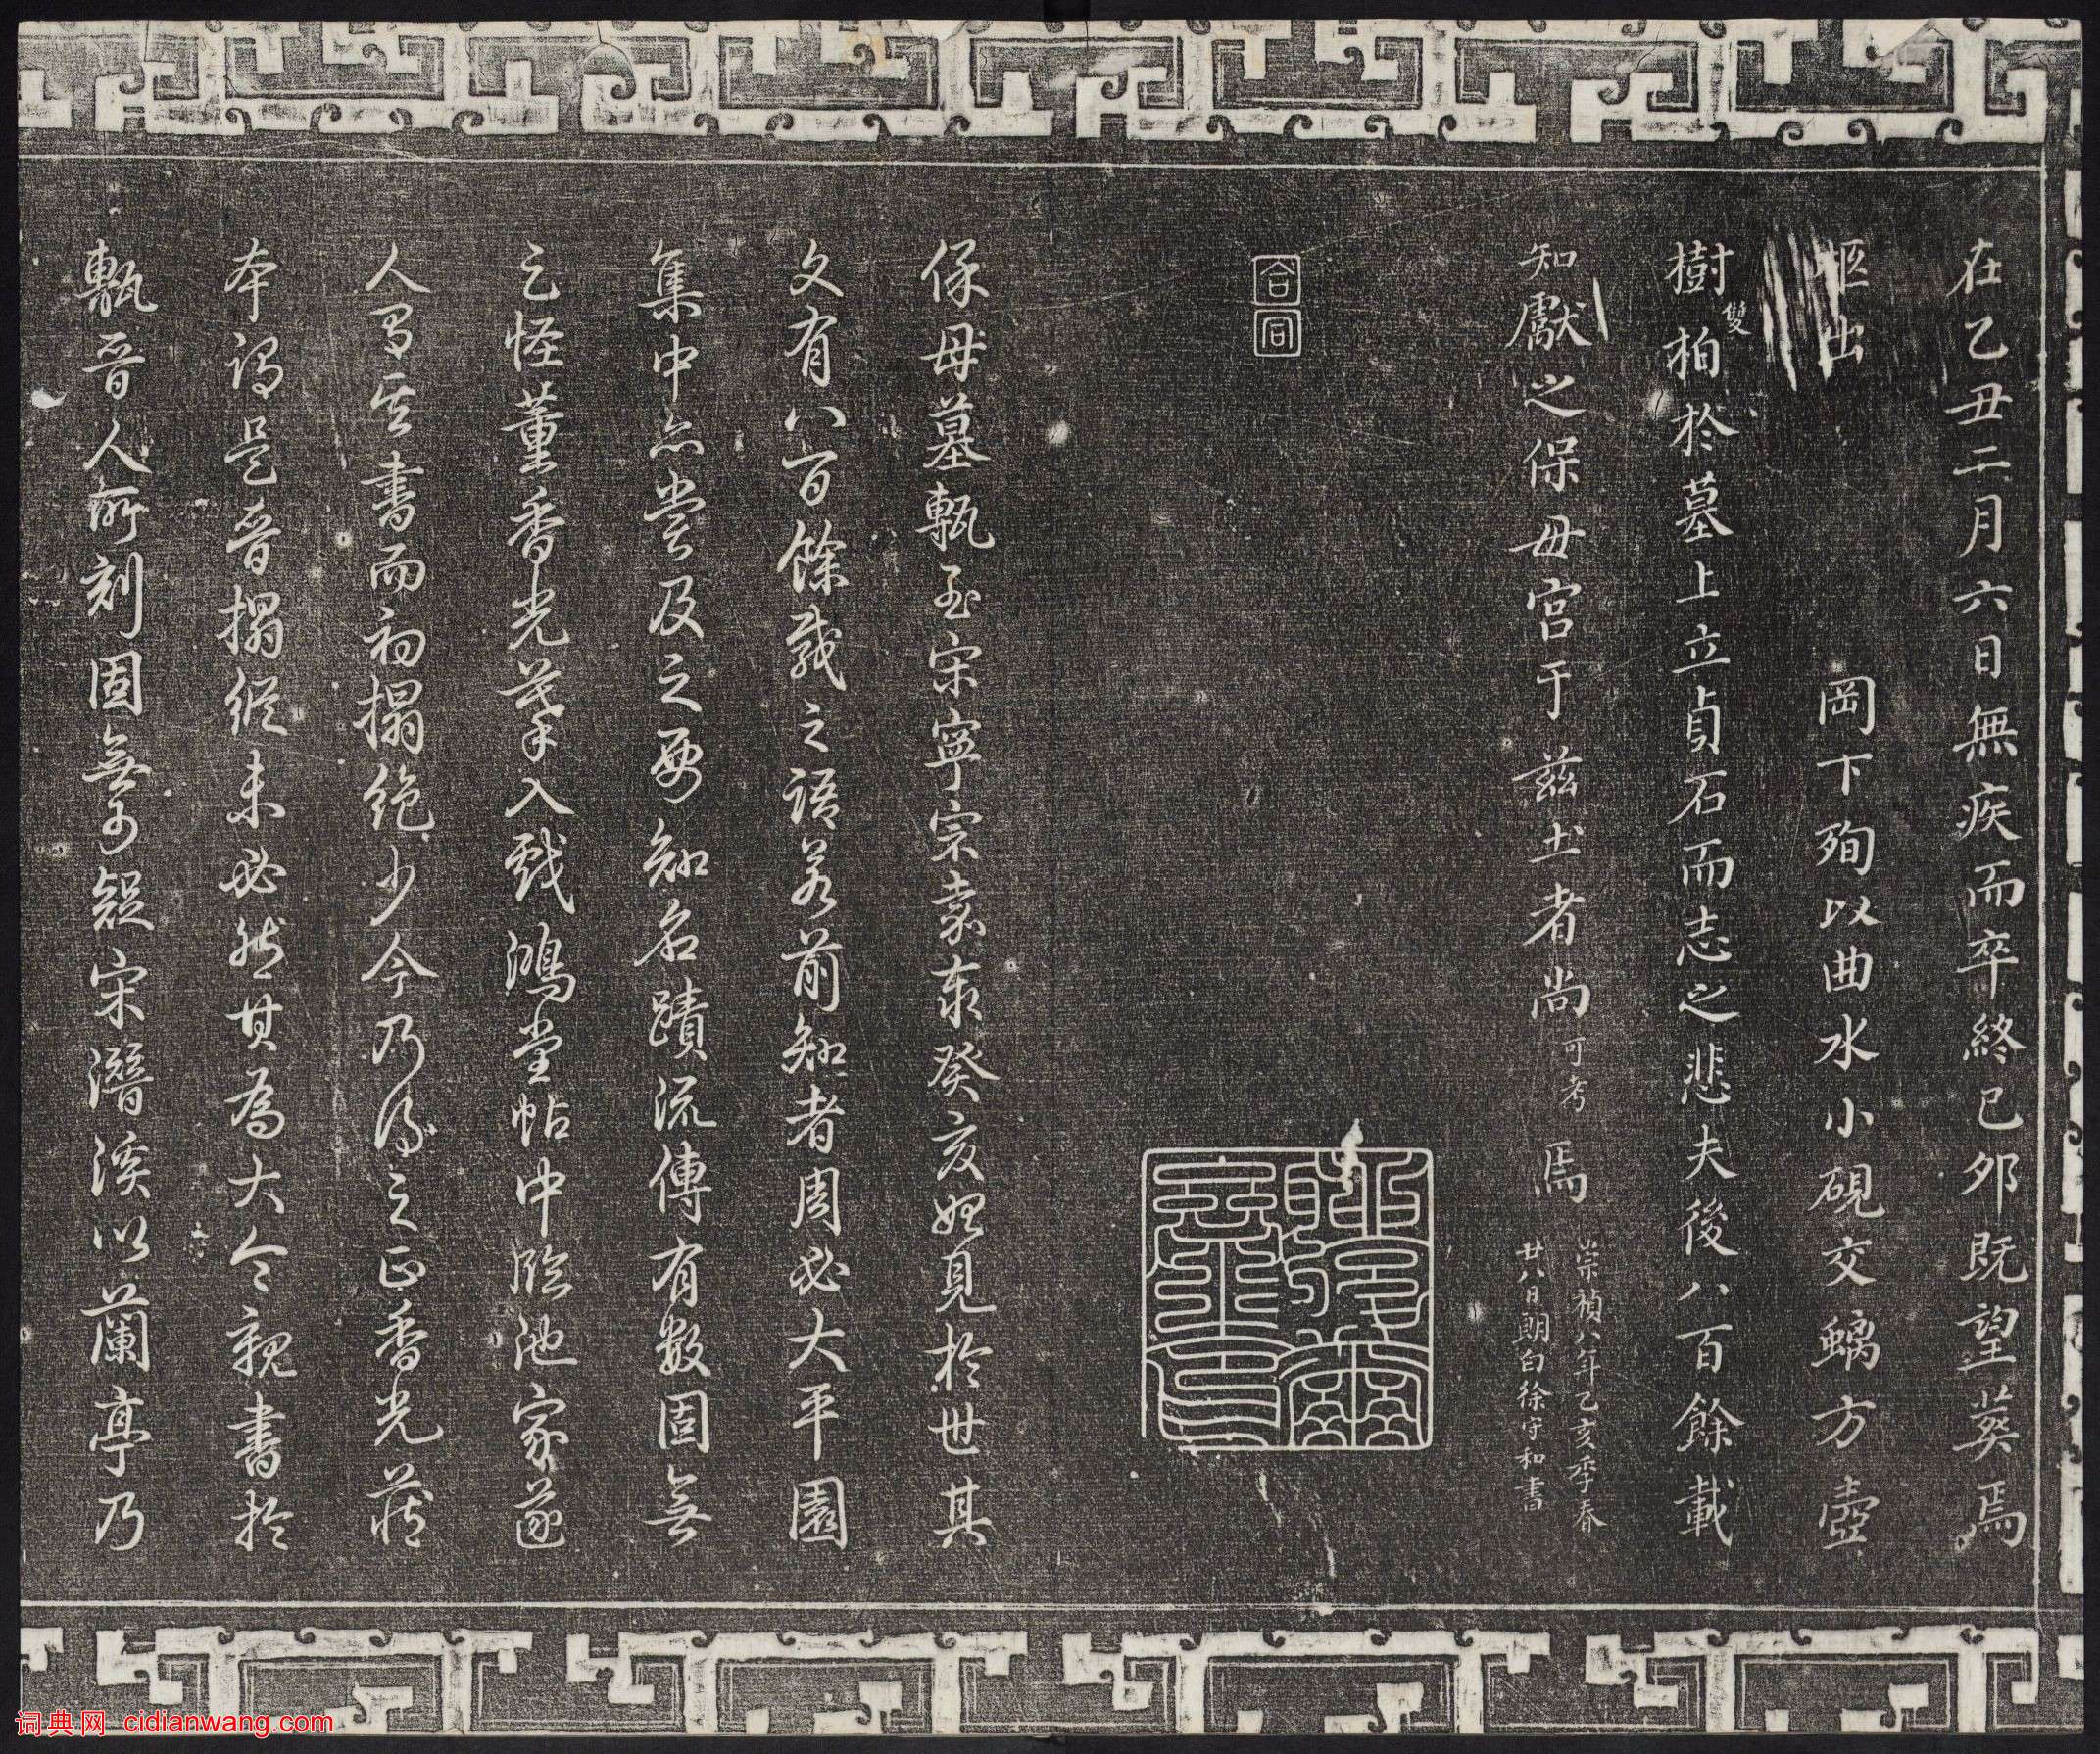 在乙丑二月六日無疾而卒終已夘既望葬焉
出 岡下殉以曲水小硯交螭方壺
樹雙柏於墓上立貞石而志之悲夫後八百餘載
知獻之保母宮于茲土者尚可考焉
崇禎八年乙亥季春
廿八日朗白徐守和書
合同
保母墓甎至宋寧宗嘉泰癸亥始見於世其
文有八百餘載之語若前知者周必大平園
集中亦嘗及之要知名蹟流傳有數固無
足怪董香光摹入戲鴻堂帖中臨池家遂
人習其書而初搨絕少今乃得之正香光藏
本謂是晉搨縱未必然其為大令親書於
甎晉人所刻固無可疑宋潛溪以蘭亭乃
词典网 cidianwang.com